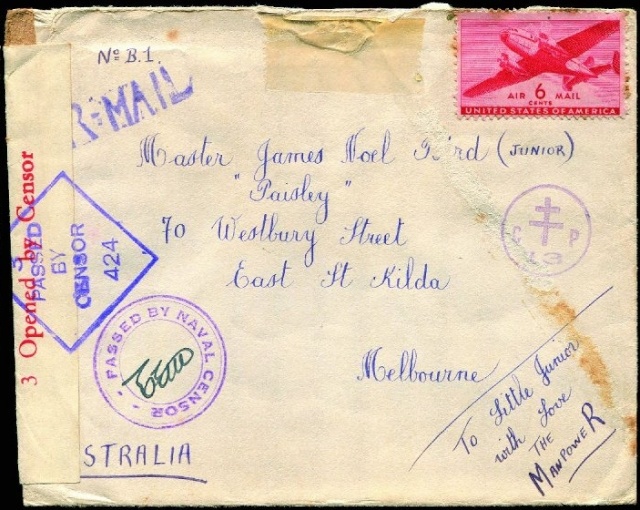 Nº B.1.
R=MAIL
AIR 6 MAIL
CENTS
UNITED STATES OF AMERICA
Master James Noel Bird (JUNIOR)
"Paisley"
70 Westbury Street
East St Kilda
Melbourne
STRALIA
To Little Junior
with Love
THE
MANPOWER
3 Opened by Censor
3
PASSED
BY
CENSOR
424
PASSED BY NAVAL CENSOR
C P
13